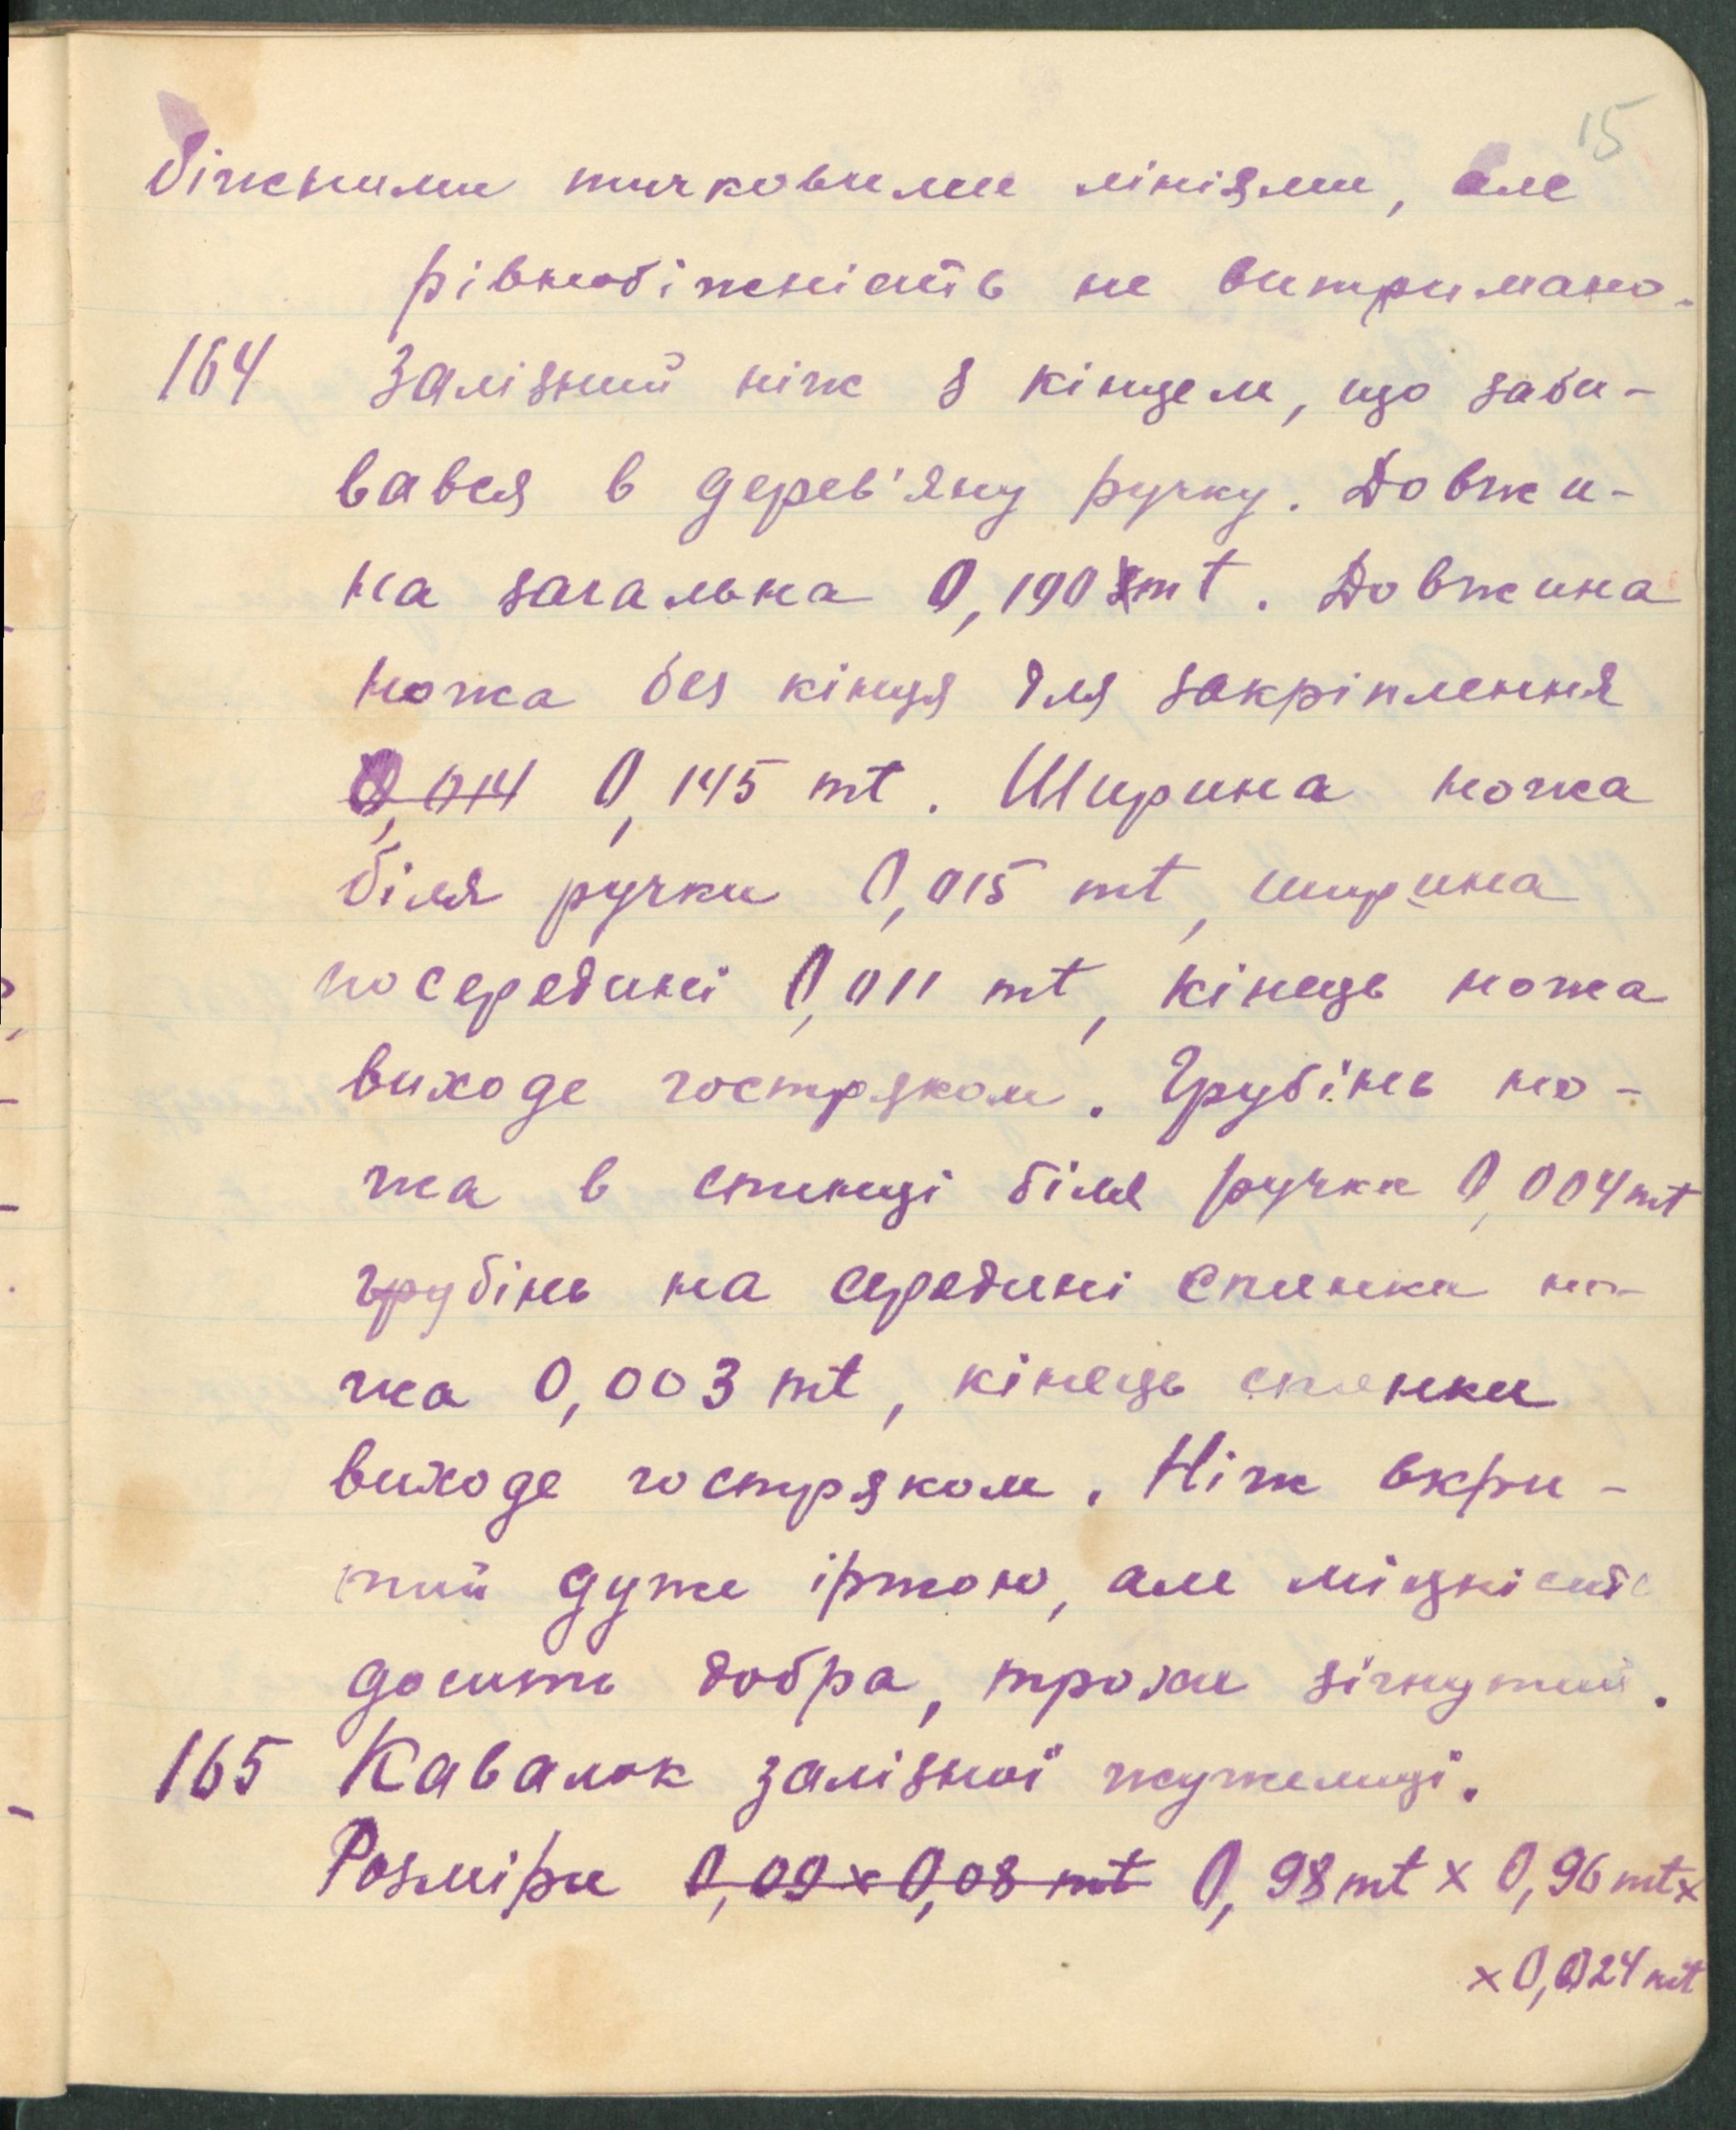 15
біжними тичковими лініями, але
рівнобіжність не витримано.
164 Залізний ніж з кінцем, що заби-
вався в дерев'яну ручку. Довжи-
на загальна 0,190 mt. Довжина
ножа без кінця для закріплення
0,014 0,145 mt. Ширина ножа
біля ручки 0,015 mt, ширина
посередині 0,011 mt, кінець ножа
виходе гостряком. Грубінь но-
жа в спинці біля ручки 0,004 mt
грубінь на середині спинки но-
жа 0,003 mt, кінець спинки
виходе гостряком. Ніж вкри-
тий дуже іржою, але міцкість
досить добра, трохи зігнутий.
165 Кавалок залізної жужелиці.
Розміри 0,09 x 0,08 mt 0,98 mt x 0,96 mt x
x 0,024 mt